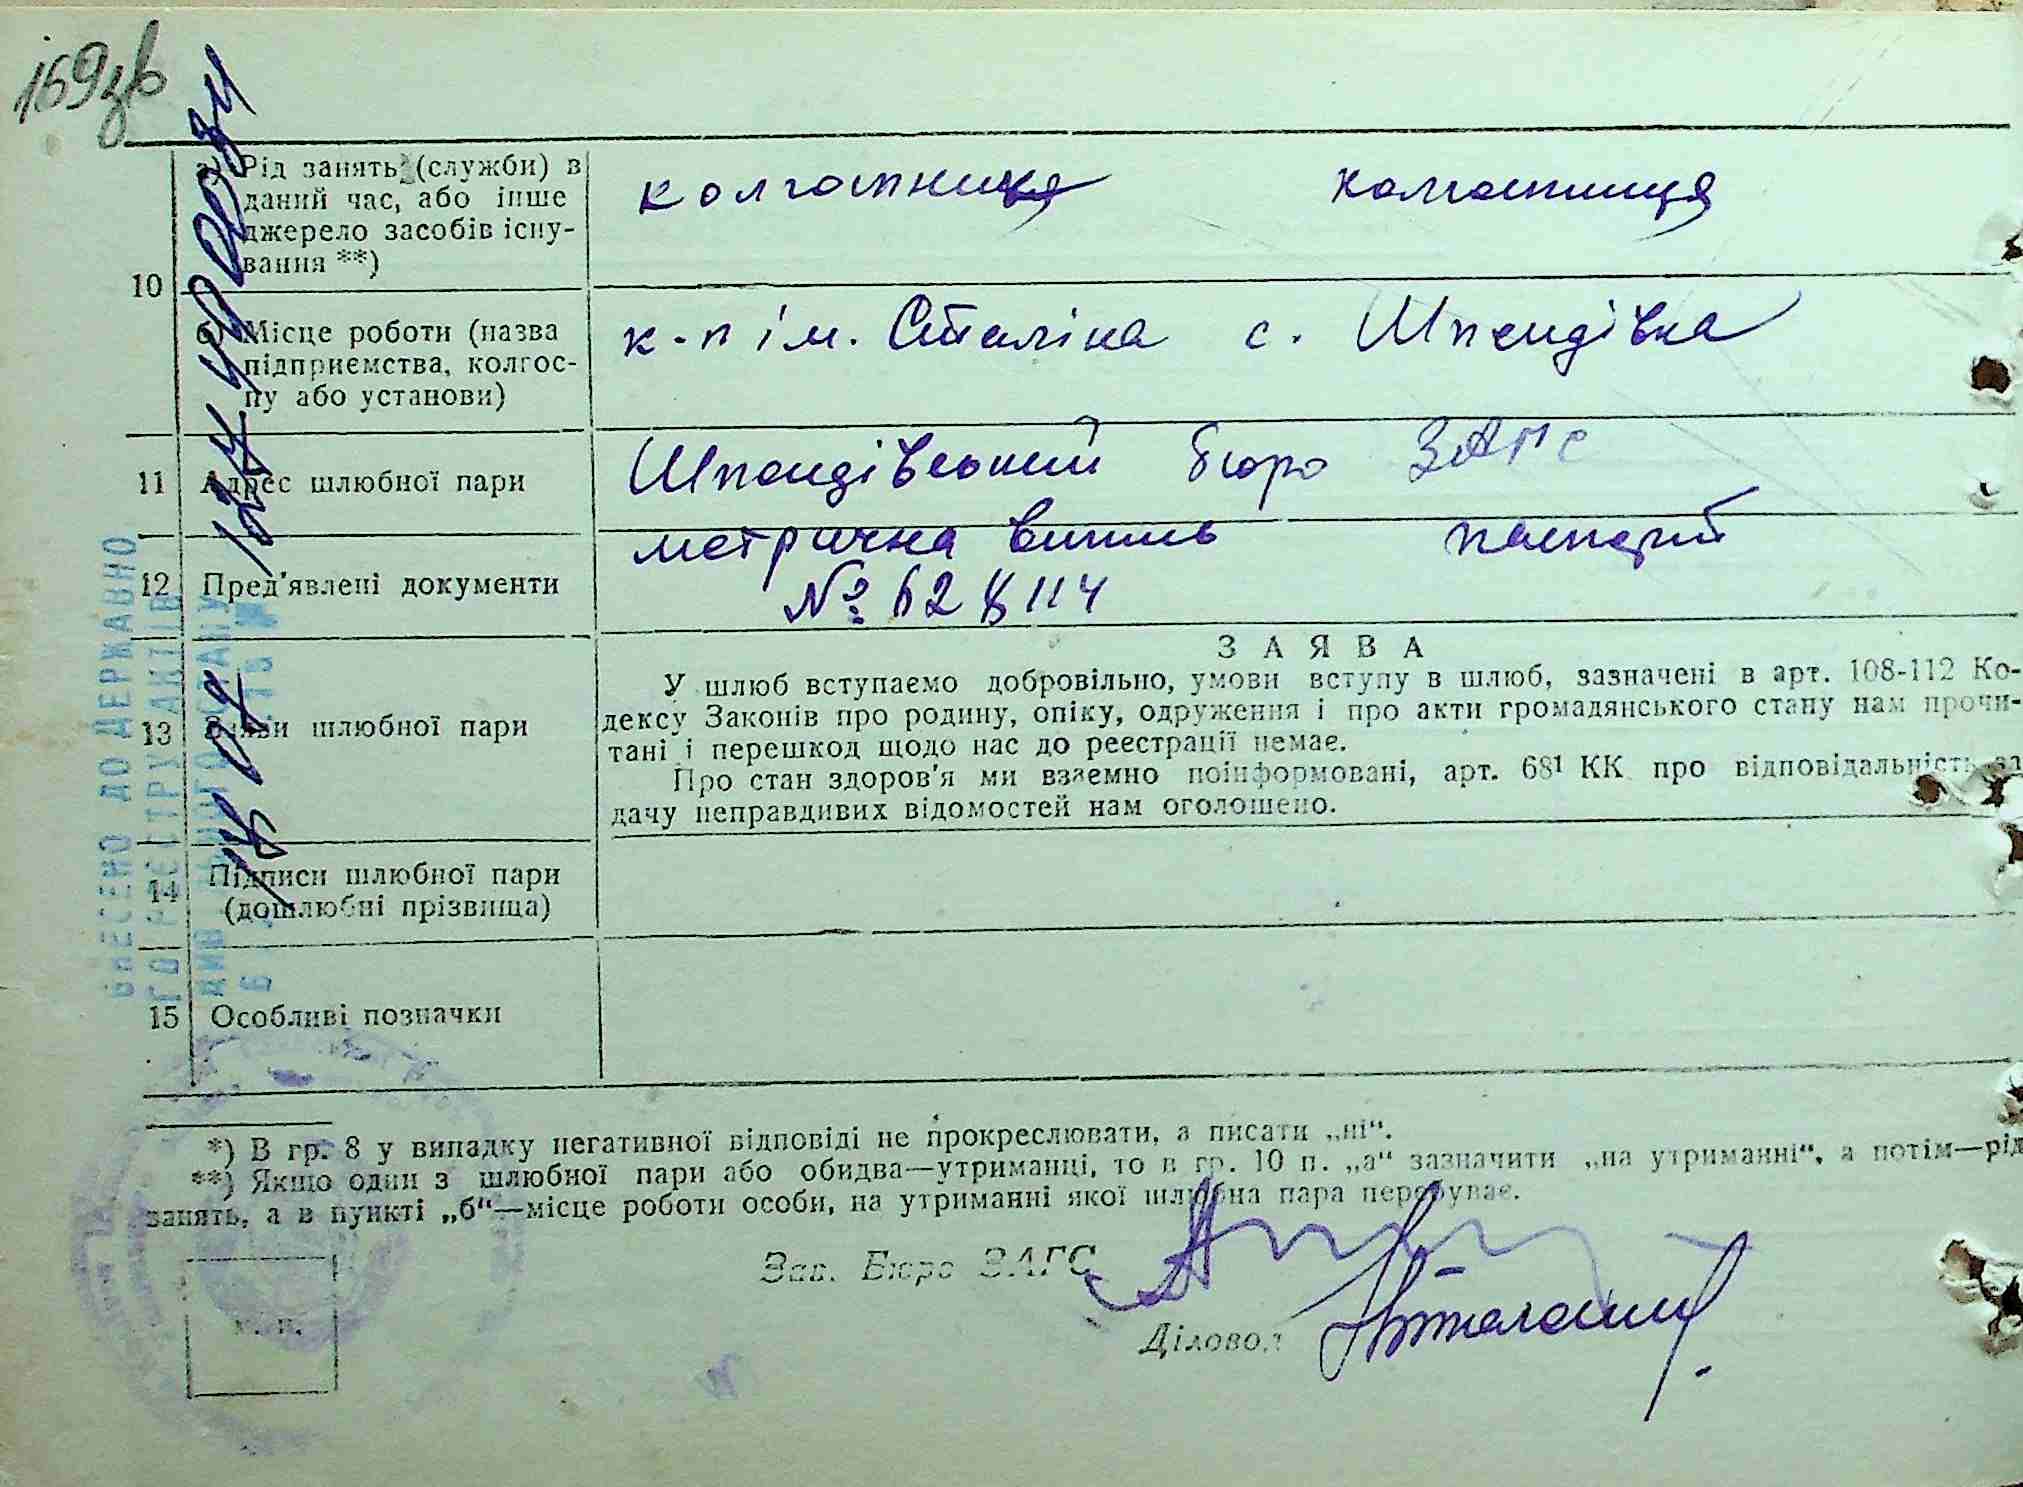 169зв
а) Рід занять (служби) в
даний час, або інше
джерело засобів існу-
вання **)
колгоспник колгоспниця
10
б) Місце роботи (назва
підприємства, колгос-
пу або установи)
к-п ім. Сталіна с. Шпендівка
11 Адрес шлюбної пари
Шпендівський бюро ЗАГС
12 Пред'явлені документи
метрична випись паспорт
№
13 Заяви шлюбної пари
ЗАЯВА
У шлюб вступаємо добровільно, умови вступу в шлюб, зазначені в арт. 108-112 Ко-
дексу Законів про родину, опіку, одруження і про акти громадянського стану нам прочи-
тані і перешкод щодо нас до реестрації немає.
Про стан здоров'я ми взаємно поінформовані, арт. 68¹ КК про відповідальність за
дачу неправдивих відомостей нам оголошено.
14 Підписи шлюбної пари
(дошлюбні прізвища)
15 Особливі позначки
ВНЕСЕНО ДО ДЕРЖАВНО
ГО РЕЄСТРУ АКТІВ
ЦИВІЛЬНОГО СТАНУ
*) В гр. 8 у випадку негативної відповіді не прокреслювати, а писати „ні“.
**) Якщо один з шлюбної пари або обидва—утриманці, то в гр. 10 п. „а“ зазначити „на утриманні“, а потім—рід
занять, а в пункті „б“—місце роботи особи, на утриманні якої шлюбна пара перебуває.
Зав. Бюро ЗАГС
Діловод
м. п.